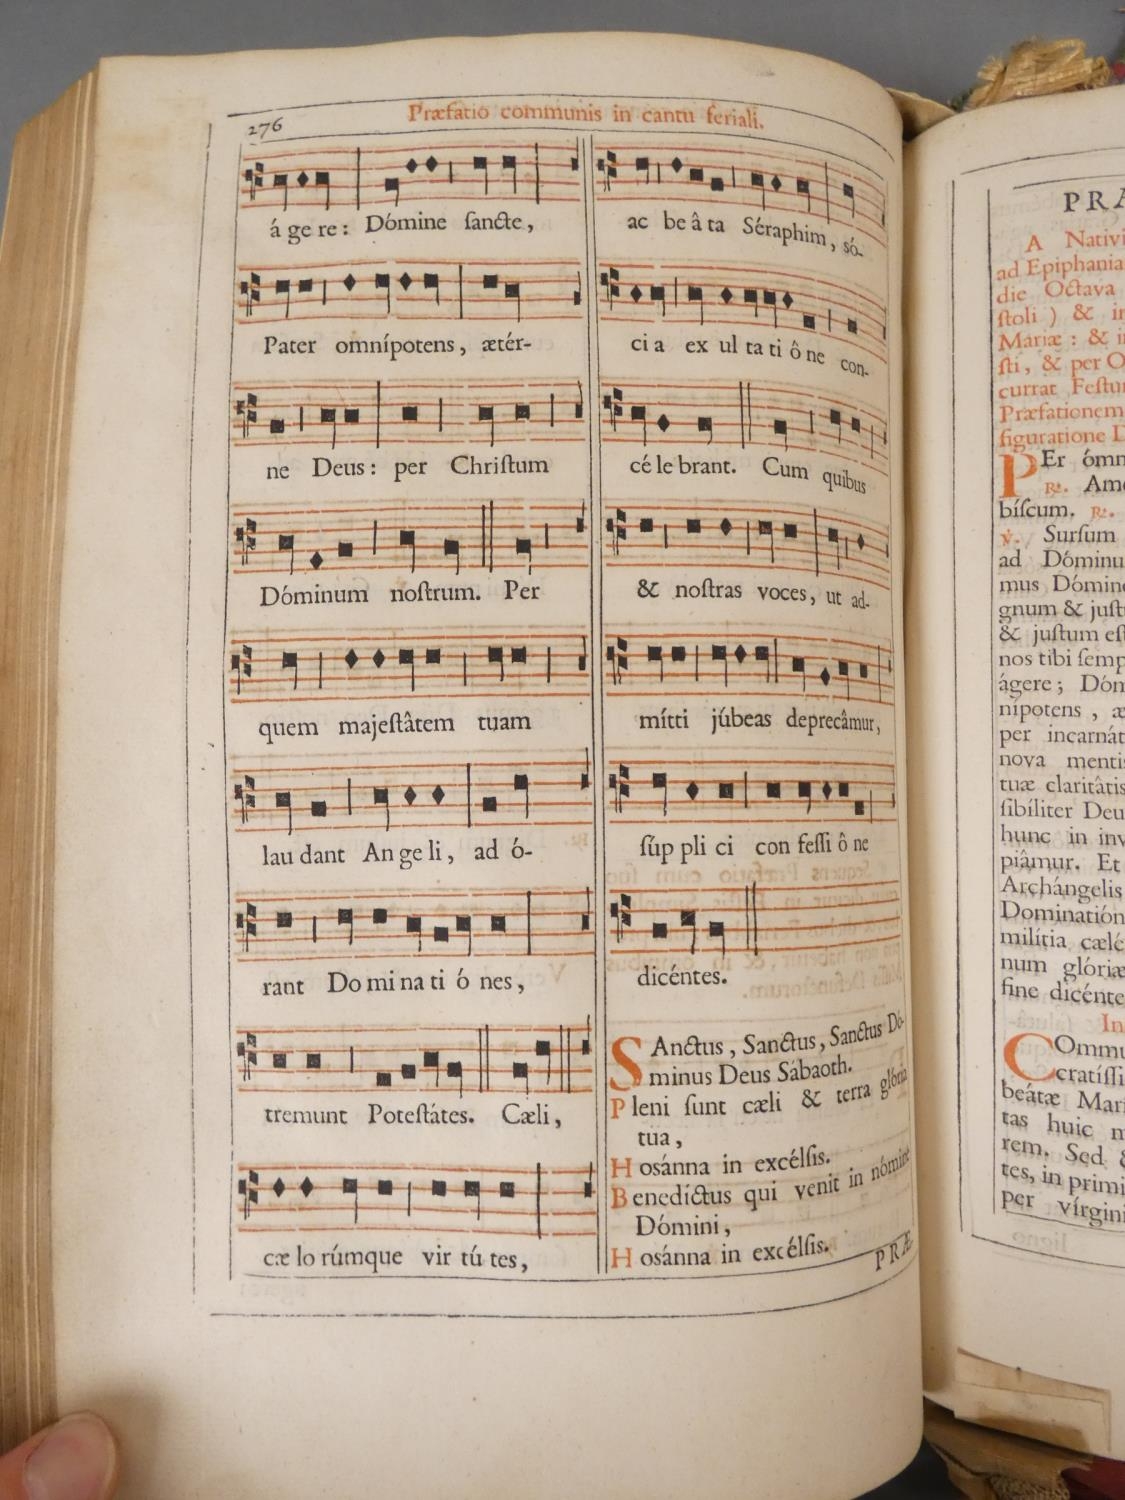 276
Præfatio communis in cantu feriali.
á ge re : Dómine ſancte,
Pater omnípotens, ætér-
ne Deus : per Chriſtum
Dóminum noſtrum. Per
quem majeſtâtem tuam
lau dant An ge li, ad ó-
rant Do mi na ti ó nes,
tremunt Poteſtátes. Cæli,
cæ lo rúmque vir tú tes,
ac be â ta Séraphim, só-
ci a ex ul ta ti ô ne con-
cé le brant. Cum quibus
& noſtras voces, ut ad-
mítti júbeas deprecâmur,
ſúp pli ci con feſſi ô ne
dicéntes.
SAnctus, Sanctus, Sanctus Dó-
minus Deus Sábaoth.
Pleni ſunt cæli & terra glória
tua,
Hosánna in excélſis.
Benedíctus qui venit in nómine
Dómini,
Hosánna in excélſis.
PRÆ
PRÆ
A Nativi
ad Epiphania
die Octava
ſtoli ) & in
Mariæ : & i
ſti, & per O
currat Feſtu
Præfationem
figuratione
PEr ómn
℟. Ame
bíſcum. ℟.
℣. Surſum
ad Dóminu
mus Dómin
gnum & juſt
& juſtum eſt
nos tibi ſemp
ágere ; Dóm
nípotens , æ
per incarnát
nova mentis
tuæ claritâtis
ſibíliter Deu
hunc in inv
piâmur. Et
Archángelis
Dominatión
milítia cælé
num glóriæ
fine dicénte
In
COmmu
cratíſſi
beátæ Mari
tas huic n
rem. Sed &
tes, in primi
per vírgini